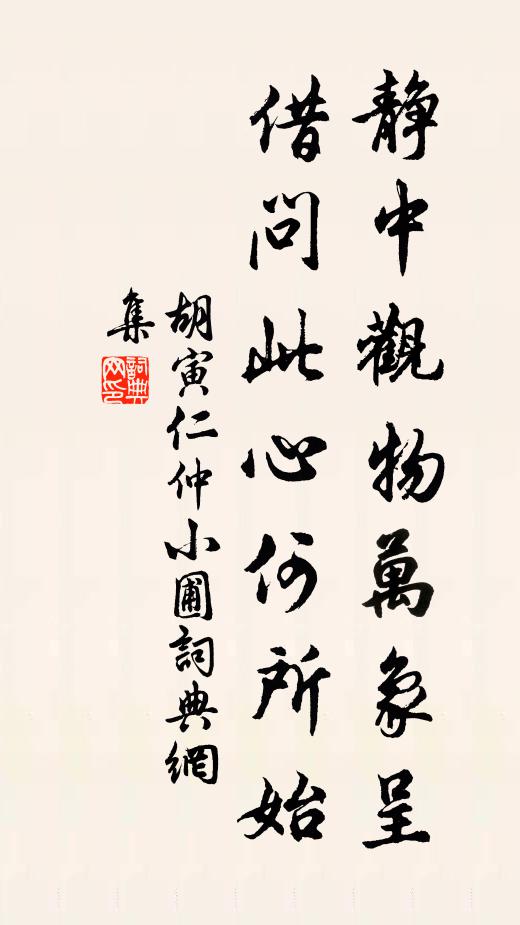 静中觀物萬象呈
借問此心何所始
胡寅仁仲小圃詞典網
集
詞典網印